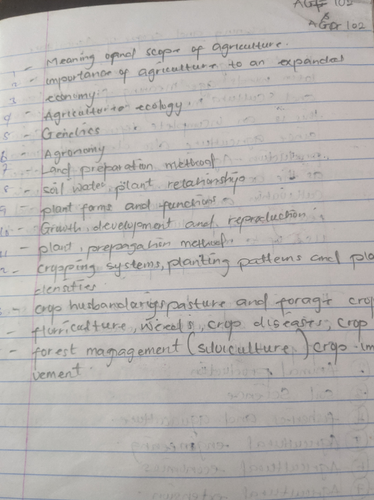 AGR 102
AGR 102
1 - Meaning and scope of agriculture.
2 - importance of agriculture to an expanded
3 economy
4 - Agriculture ecology.
5 - Genetics
6 - Agronomy
7 - Land preparation method
8 - soil water plant relationship
9 - plant forms and functions
10 - Growth, development and reproduction
11 - plant propagation method
12 - cropping systems, planting patterns and pla
densities
- crop husbandaries pasture and forage crop
- fluriculture, weeds, crop diseases, crop
- forest management (silviculture) crop im
vement